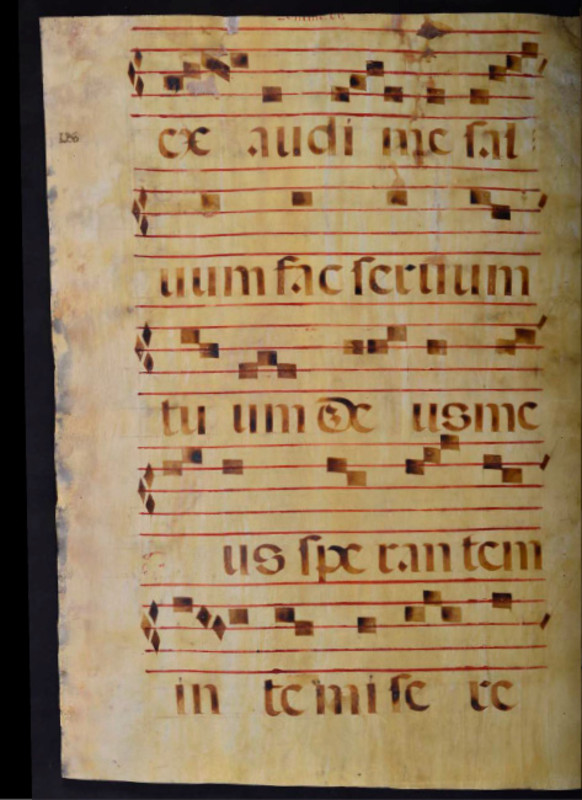 ex audi me sal
uum fac seruum
tu um De usme
us spe ran tem
in te mi se re